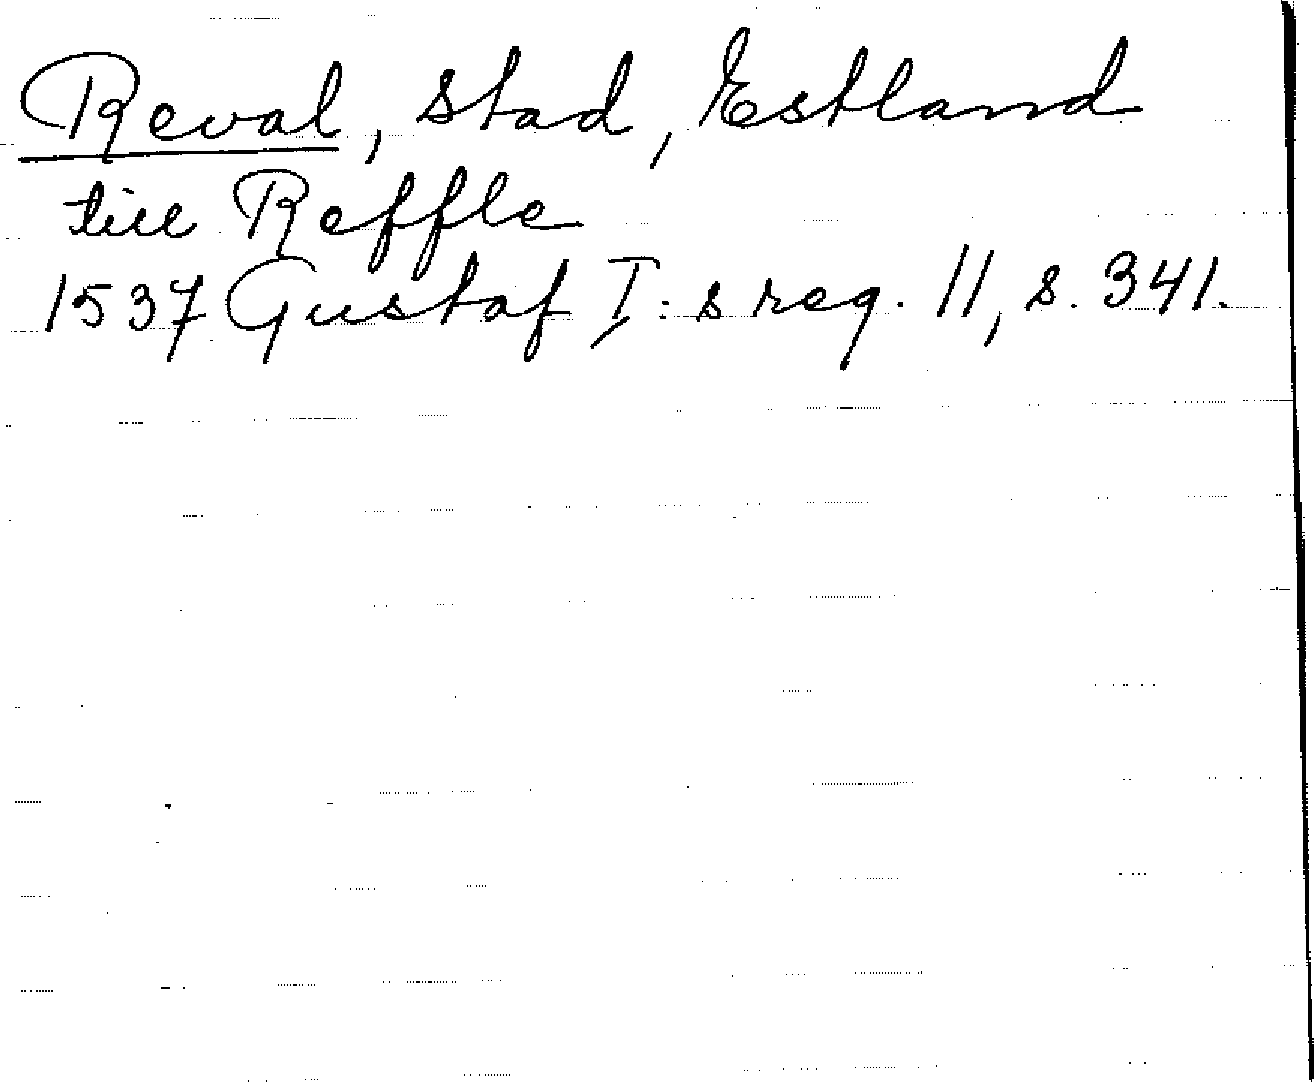 Reval, stad, Estland
till Reffle
1537 Gustaf I:s reg. 11, s. 341.